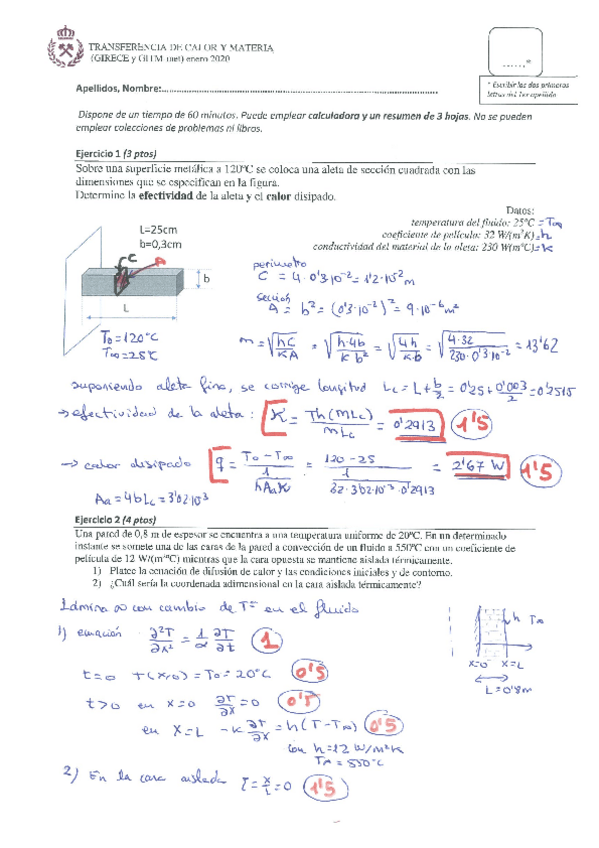 TRANSFERENCIA DE CALOR Y MATERIA
(GIRECE y GITM-met) enero 2020
Apellidos, Nombre:
......*
* Escribir las dos primeras letras del 1er apellido
Dispone de un tiempo de 60 minutos. Puede emplear calculadora y un resumen de 3 hojas. No se pueden
emplear colecciones de problemas ni libros.
Ejercicio 1 (3 ptos)
Sobre una superficie metálica a 120ºC se coloca una aleta de sección cuadrada con las
dimensiones que se especifican en la figura.
Determine la efectividad de la aleta y el calor disipado.
Datos:
temperatura del fluido: 25ºC = T∞
coeficiente de película: 32 W/(m²K) = h
conductividad del material de la aleta: 230 W/(mºC) = K
L=25cm
b=0,3cm
C
A
b
L
T0 = 120ºC
T∞ = 25ºC
perimetro
C = 4·0'3·10⁻² = 1'2·10⁻² m
sección
A = b² = (0'3·10⁻²)² = 9·10⁻⁶ m²
m = √(hC/KA) = √(h·4b/K b²) = √(4h/K·b) = √(4·32/230·0'3·10⁻²) = 13'62
suponiendo aleta fina, se corrige longitud Lc = L + b/2 = 0'25 + 0'003/2 = 0'2515
→ efectividad de la aleta: K = Th(mLc)/mLc = 0'2913 1'5
→ calor disipado q = (T0 - T∞)/(1/hAaK) = (120 - 25)/(1/32·3'02·10⁻³·0'2913) = 2'67 W 1'5
Aa = 4bLc = 3'02·10⁻³
Ejercicio 2 (4 ptos)
Una pared de 0,8 m de espesor se encuentra a una temperatura uniforme de 20ºC. En un determinado
instante se somete una de las caras de la pared a convección de un fluido a 550ºC con un coeficiente de
película de 12 W/(m²ºC) mientras que la cara opuesta se mantiene aislada térmicamente.
1) Platee la ecuación de difusión de calor y las condiciones iniciales y de contorno.
2) ¿Cuál sería la coordenada adimensional en la cara aislada térmicamente?
Lámina ∞ con cambio de Tª en el fluido
1) ecuación ∂²T/∂x² = 1/α ∂T/∂t 1
t=0 T(x,0) = T0 = 20ºC 0'5
t>0 en x=0 ∂T/∂x = 0 0'5
en x=L -K ∂T/∂x = h(T-T∞) 0'5
con h=12 W/m²K
T∞ = 550ºC
h T∞
x=0 x=L
L=0'8m
2) En la cara aislada ξ = x/L = 0 1'5